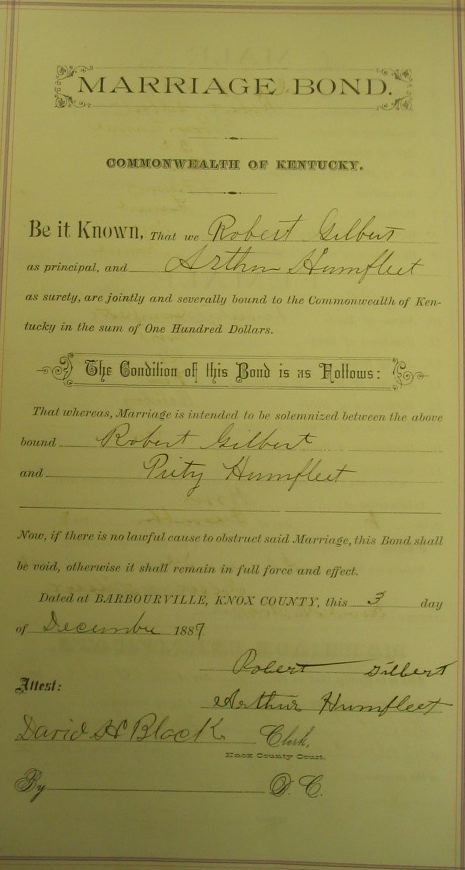 MARRIAGE BOND.
COMMONWEALTH OF KENTUCKY.
Be it Known, That we Robert Gilbert
as principal, and Arthur Humfleet
as surety, are jointly and severally bound to the Commonwealth of Ken-
tucky in the sum of One Hundred Dollars.
The Condition of this Bond is as Follows:
That whereas, Marriage is intended to be solemnized between the above
bound Robert Gilbert
and Humfleet
Now, if there is no lawful cause to obstruct said Marriage, this Bond shall
be void, otherwise it shall remain in full force and effect.
Dated at BARBOURVILLE, KNOX COUNTY, this 3 day
of December 1887
Robert Gilbert
Attest:
Arthur Humfleet
David H Black Clerk,
Knox County Court.
By D. C.